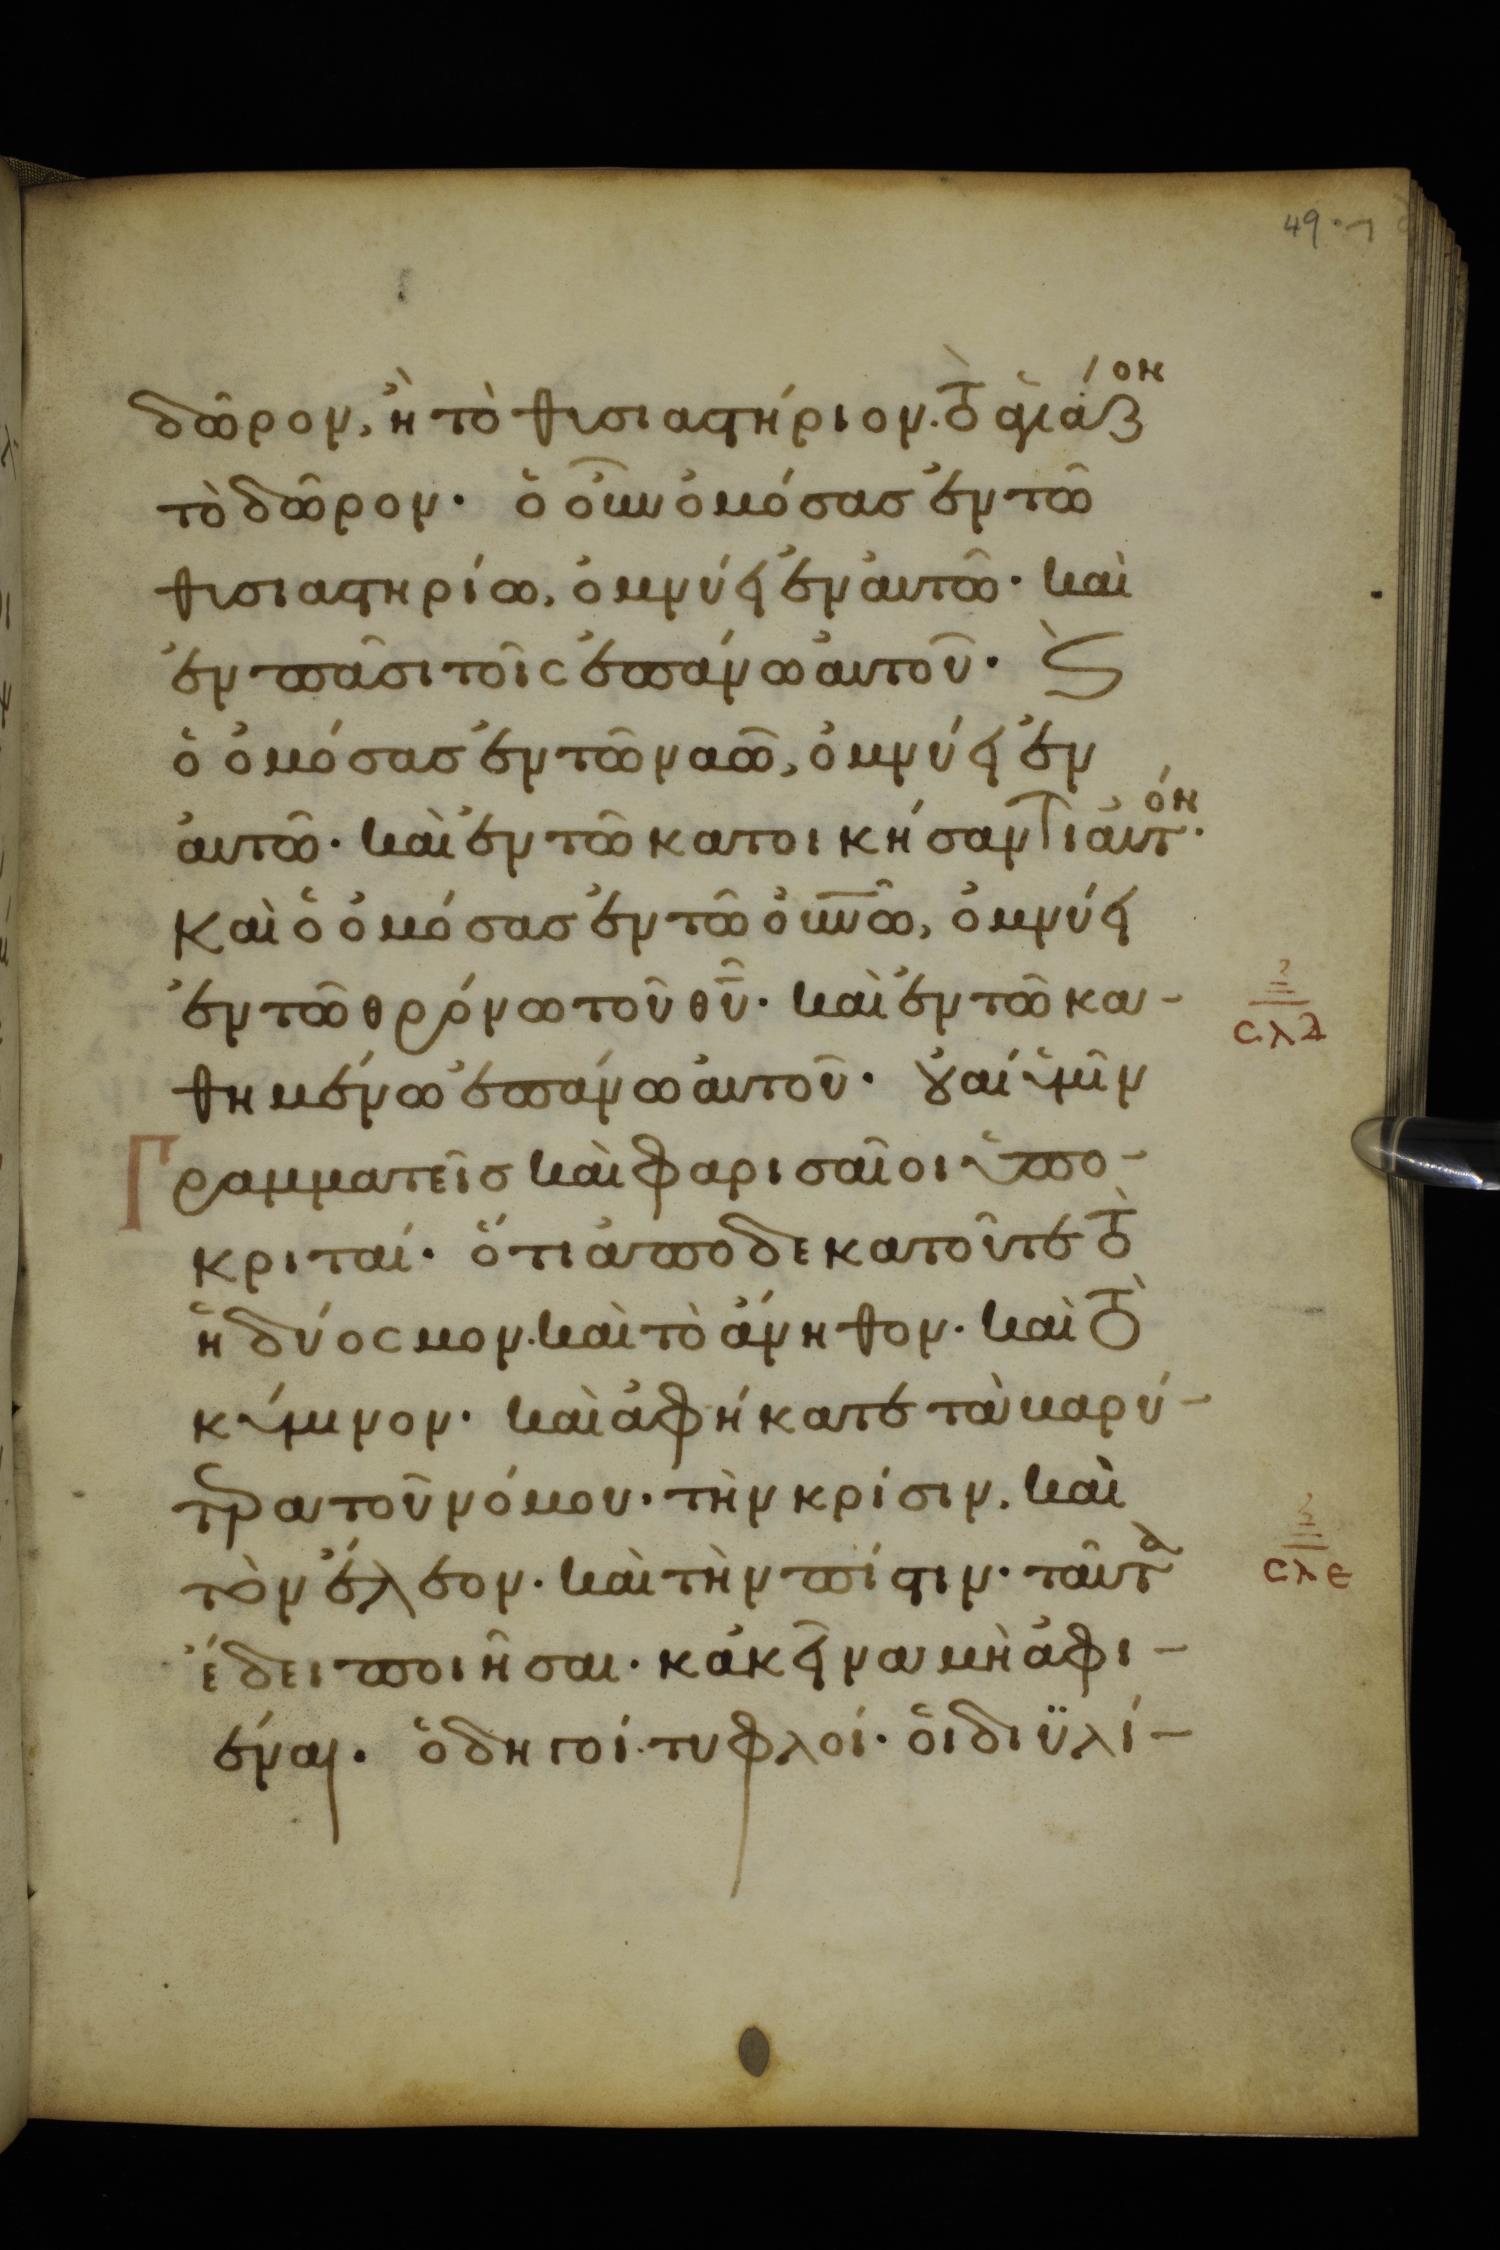 49
δῶρον, ἢ τὸ θυσιαστήριον. τὸ ἁγιάζον
τὸ δῶρον· ὁ οὖν ὀμόσας ἐν τῶ
θυσιαστηρίω, ὀμνύει ἐν ἀυτῶ· καὶ
ἐν πᾶσι τοῖς ἐπάνω ἀυτοῦ· Ϛ
ὁ ὀμόσας ἐν τῶ ναῶ, ὀμνύει ἐν
ἀυτῶ· καὶ ἐν τῶ κατοικήσαντι ἀυτόν·
Καὶ ὁ ὀμόσας ἐν τῶ οὐνῶ, ὀμνύει
ἐν τῶ θρόνω τοῦ θῦ· καὶ ἐν τῶ κα-
σλδ
θημένω ἐπάνω ἀυτοῦ· ὀυαί ὑμῖν
Γραμματεῖς καὶ φαρισαῖοι ὑπο-
κριταί· ὅτι ἀποδεκατοῦτε τὸ
ἡδύοσμον. καὶ τὸ ἄνηθον· καὶ τὸ
κύμινον· καὶ ἀφήκατε τὰ βαρύ-
τερα τοῦ νόμου· τὴν κρίσιν, καὶ
τὸν ἔλεον· καὶ τὴν πίστιν· ταῦτα
σλε
ἔδει ποιῆσαι· κἀκεῖνα μὴ ἀφι-
έναι· ὁδηγοί τυφλοί· ὁι διϋλί-